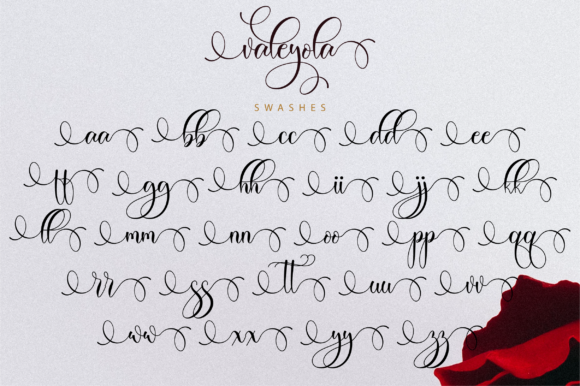 valeyola
SWASHES
aa bb cc dd ee
ff gg hh ii jj kk
ll mm nn oo pp qq
rr ss tt uu vv
ww xx yy zz